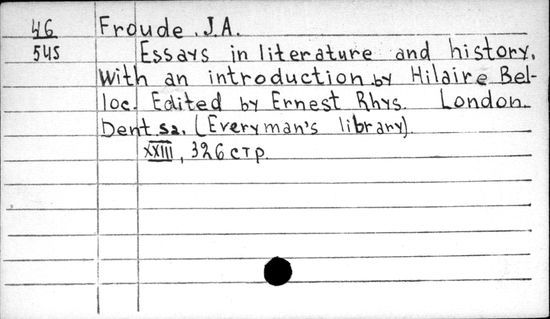 46 Froude. J.A.
545 Essays in literature and history.
With an introduction by Hilaire Bel-
loc. Edited by Ernest Rhys. London.
Dent s.a. (Everyman's library)
XXIII, 326 стр.